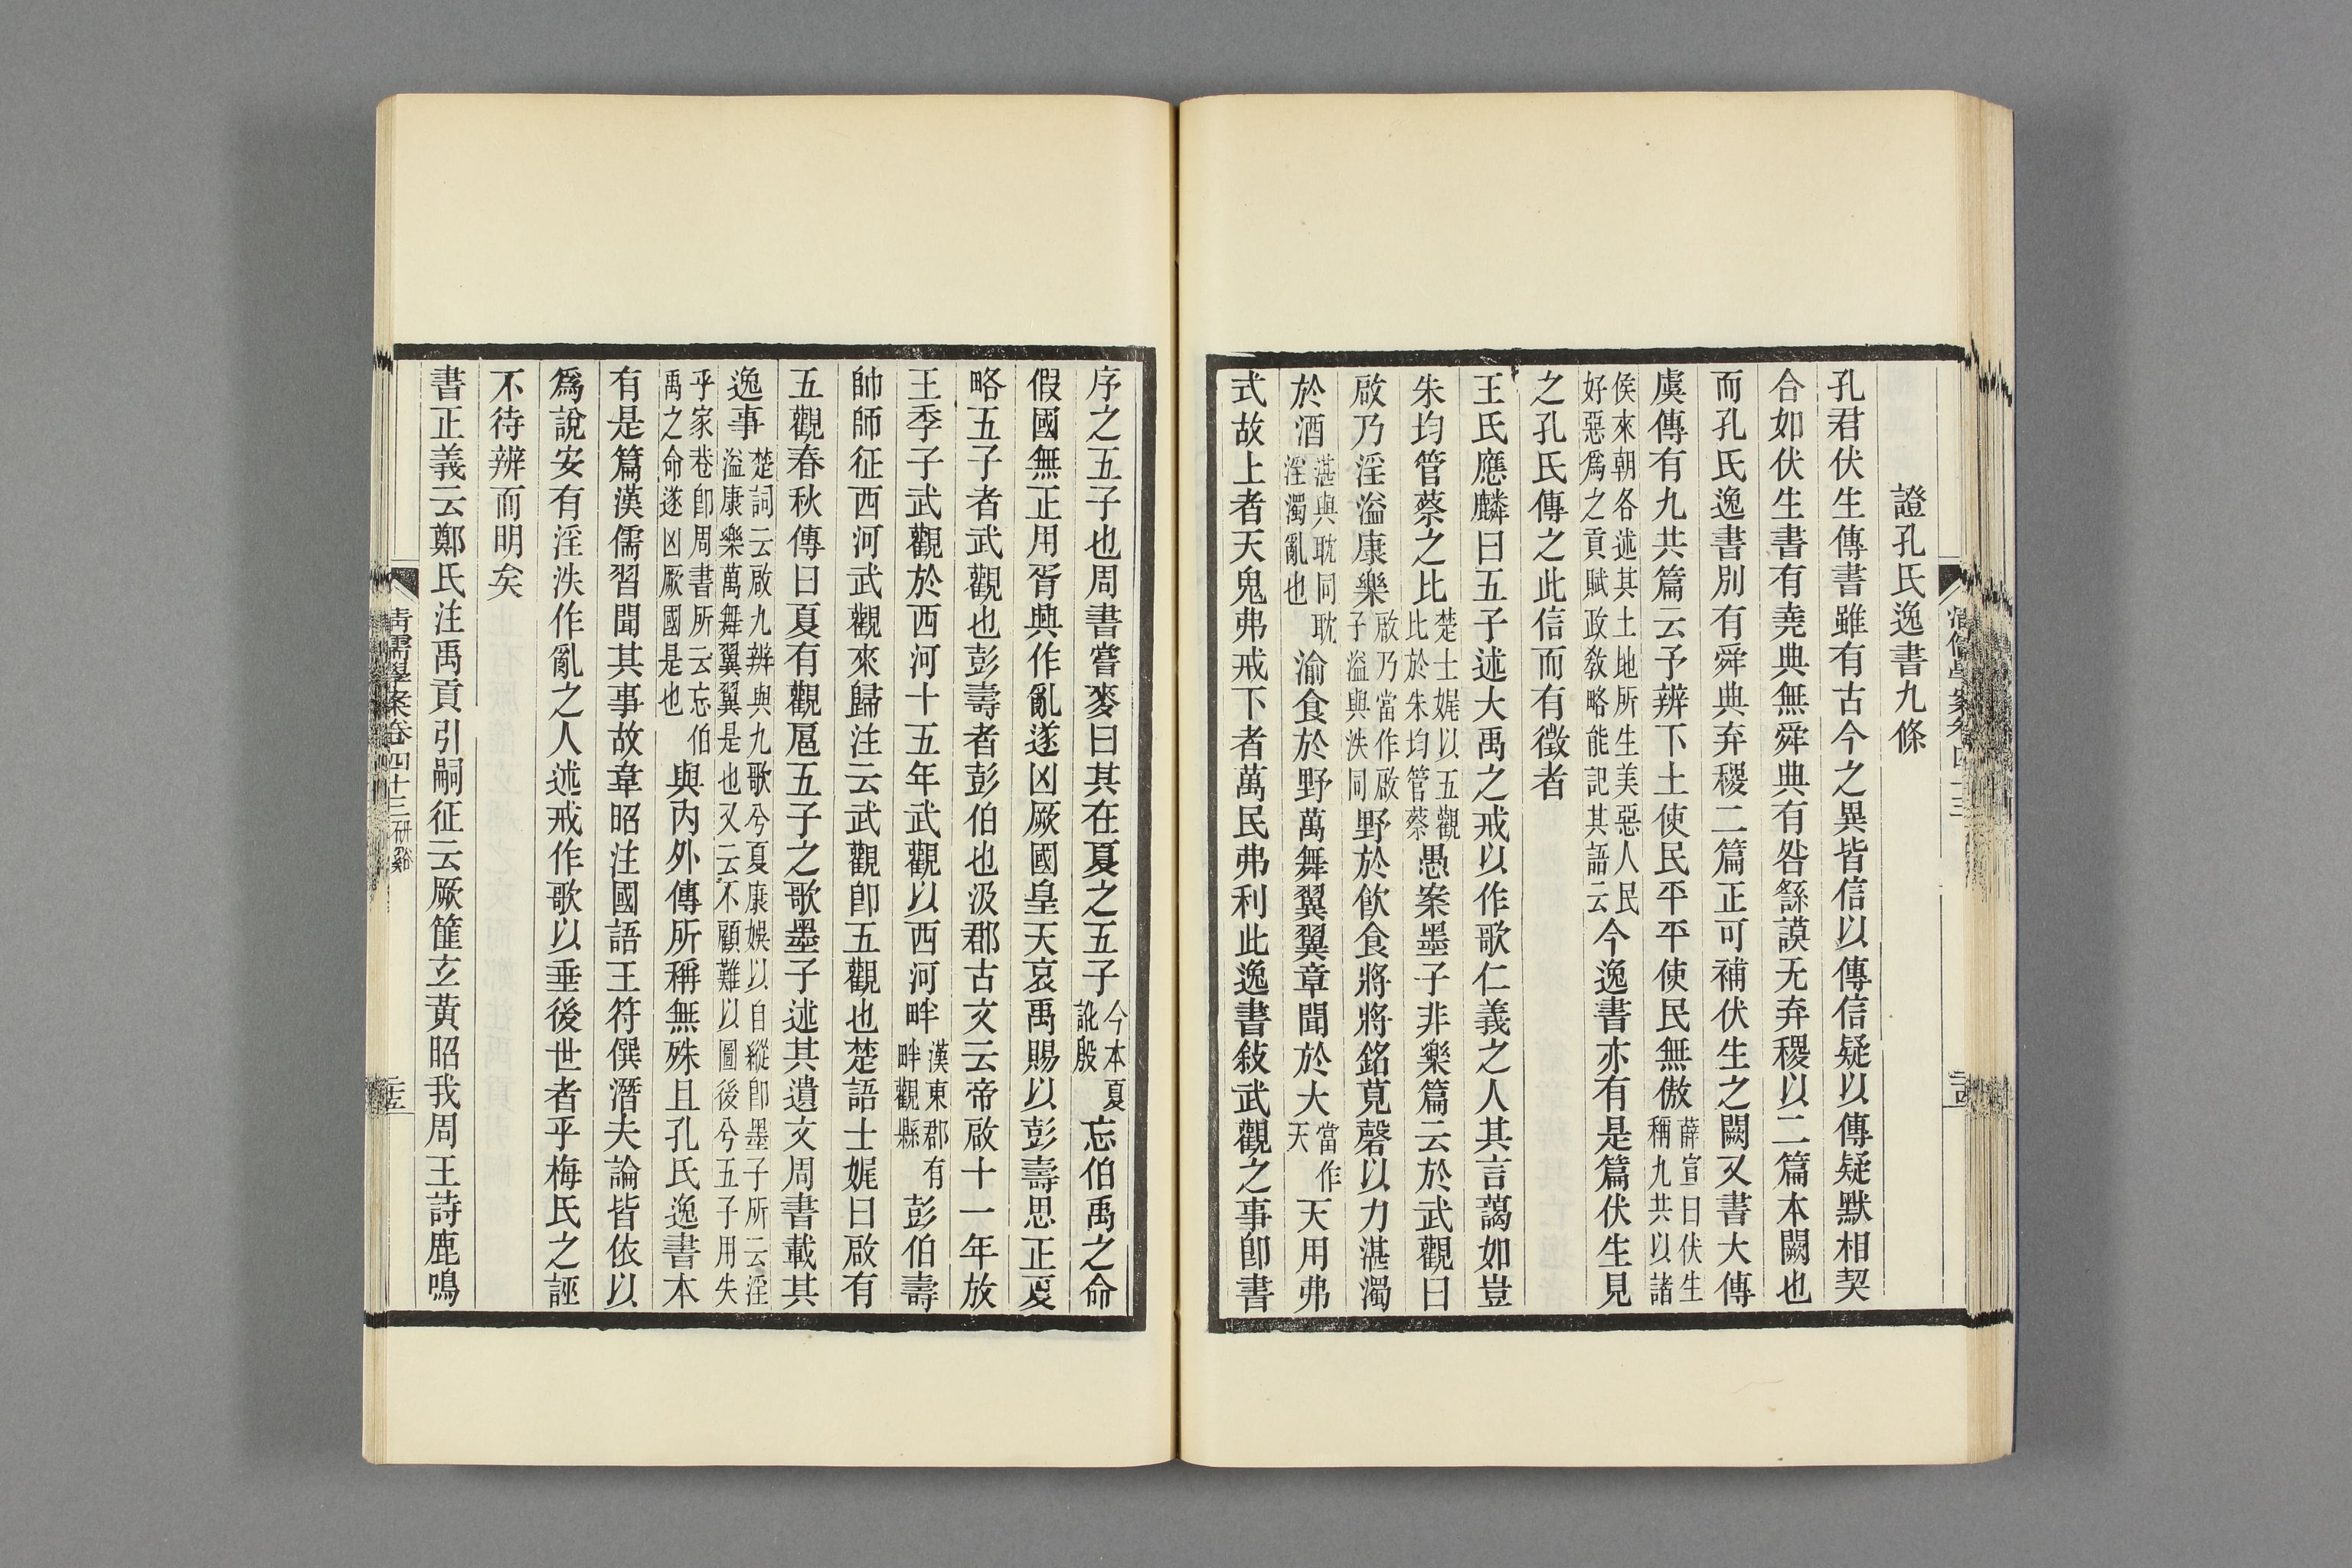 證孔氏逸書九條
孔君伏生傳書雖有古今之異皆信以傳信疑以傳疑默相契
合如伏生書有堯典無舜典有咎繇謨无弃稷以二篇本闕也
而孔氏逸書別有舜典弃稷二篇正可補伏生之闕又書大傳
虞傳有九共篇云予辨下土使民平平使民無傲薛宣曰伏生稱九共以諸
侯來朝各述其土地所生美惡人民好惡爲之貢賦政敎略能記其語云今逸書亦有是篇伏生見
之孔氏傳之此信而有徵者
王氏應麟曰五子述大禹之戒以作歌仁義之人其言藹如豈
朱均管蔡之比楚士娓以五觀比於朱均管蔡愚案墨子非樂篇云於武觀曰
啟乃淫溢康樂啟乃當作啟子溢與泆同野於飮食將將銘莧磬以力湛濁
於酒湛與耽同耽淫濁亂也渝食於野萬舞翼翼章聞於大當作天天用弗
式故上者天鬼弗戒下者萬民弗利此逸書敍武觀之事卽書
序之五子也周書嘗麥曰其在夏之五子今本夏訛殷忘伯禹之命
假國無正用胥興作亂遂凶厥國皇天哀禹賜以彭壽思正夏
略五子者武觀也彭壽者彭伯也汲郡古文云帝啟十一年放
王季子武觀於西河十五年武觀以西河畔漢東郡有畔觀縣彭伯壽
帥師征西河武觀來歸注云武觀卽五觀也楚語士娓曰啟有
五觀春秋傳曰夏有觀扈五子之歌墨子述其遺文周書載其
逸事楚詞云啟九辨與九歌兮夏康娛以自縱卽墨子所云淫溢康樂萬舞翼翼是也又云不顧難以圖後兮五子用失
乎家巷卽周書所云忘伯禹之命遂凶厥國是也與內外傳所稱無殊且孔氏逸書本
有是篇漢儒習聞其事故韋昭注國語王符僎潛夫論皆依以
爲說安有淫泆作亂之人述戒作歌以垂後世者乎梅氏之誣
不待辨而明矣
書正義云鄭氏注禹貢引嗣征云厥篚玄黃昭我周王詩鹿鳴
清儒學案卷四十三研谿
二十五